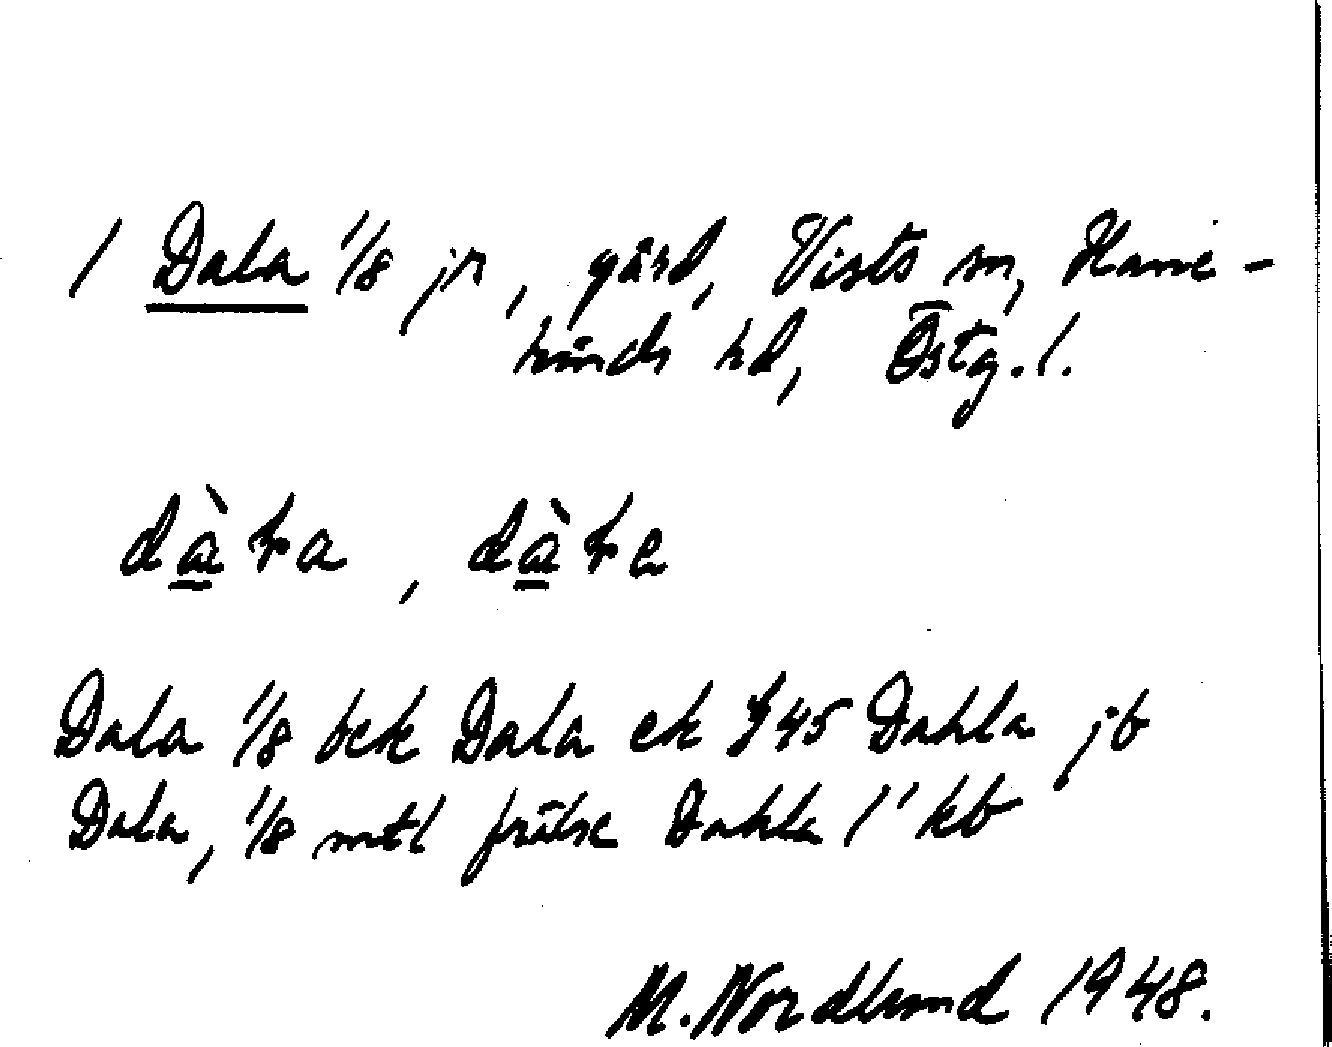 1 Dala 1/8 jr, gård, Vists sn, Hane-
kinds hd, Östg. l.
Dala 1/8 bck Dala ek J45 Dahla jb
Dala, 1/8 mtl frälse Dahla 1' kb
M. Nordlund 1948.